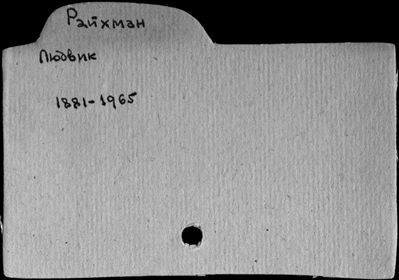 Райхман
Людвик
1881-1965